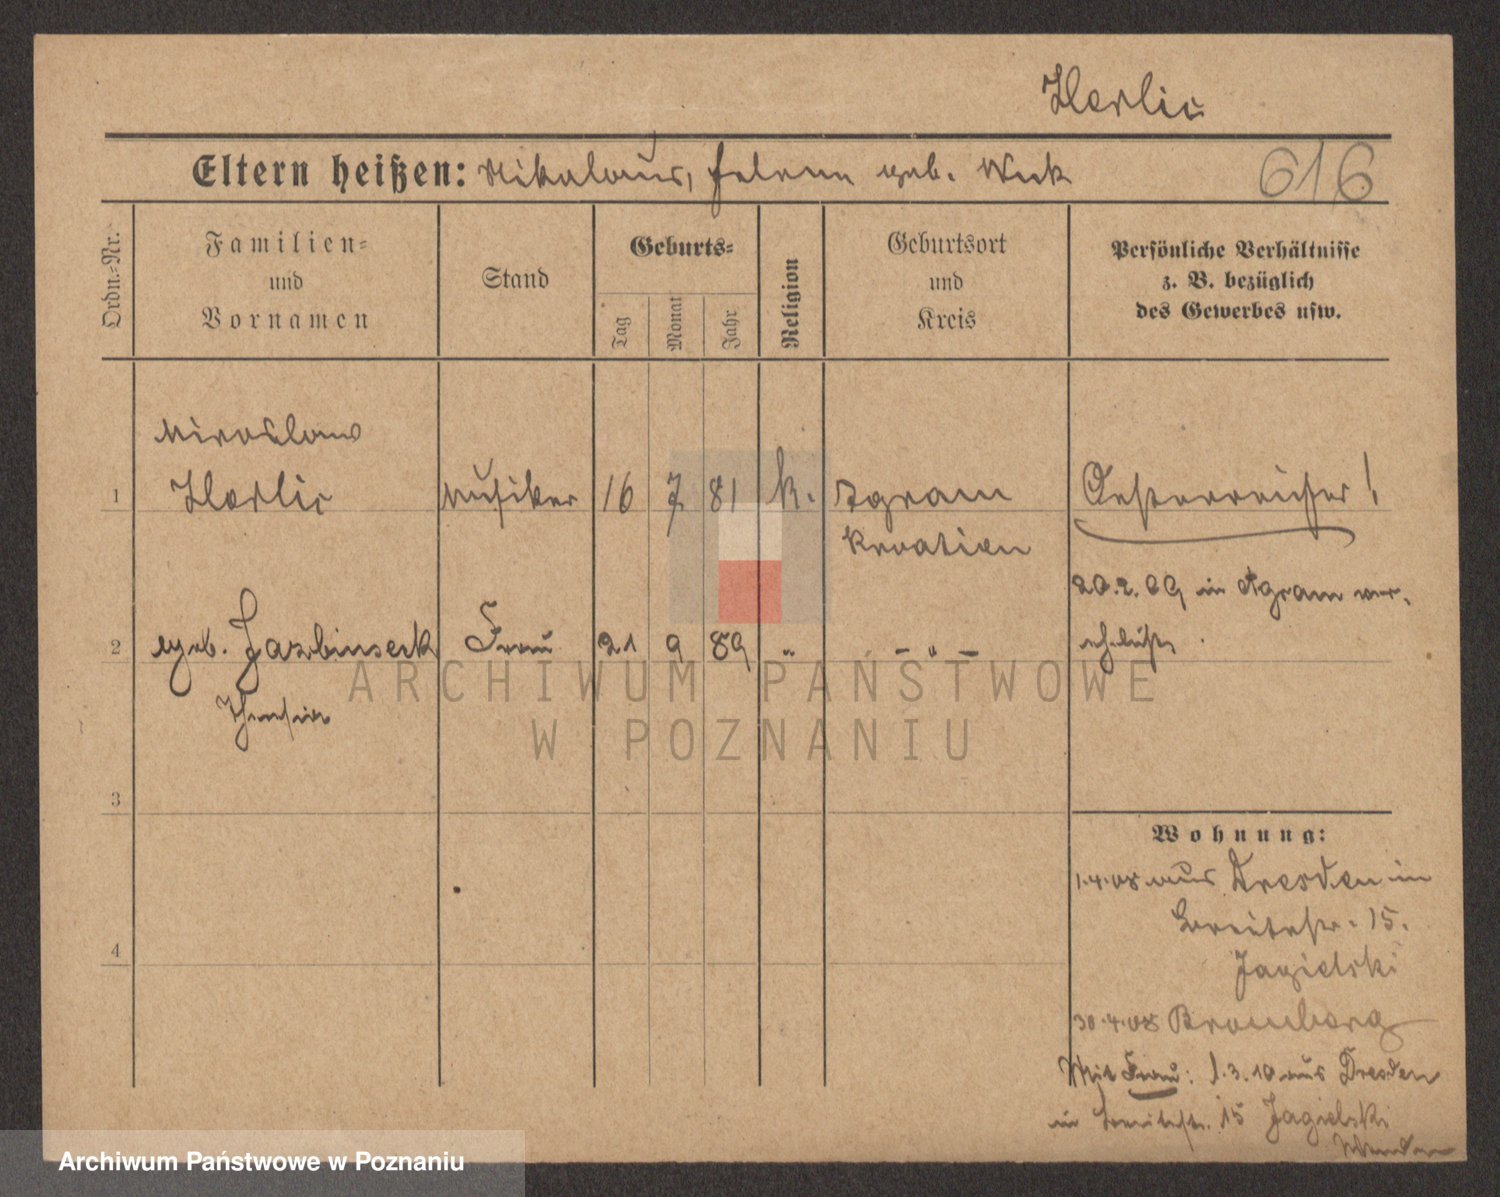 Eltern heißen: Nikolaus, Helene geb.
616
Ordn.-Nr.
Familien-
und
Vornamen
Stand
Geburts-
Tag
Monat
Jahr
Religion
Geburtsort
und
Kreis
Persönliche Verhältnisse
z. B. bezüglich
des Gewerbes usw.
Miroslaw
1 Musiker 16 7 81 k. Agram Oesterreicher!
Kroatien
20.2.09 in Agram ver-
ehelicht.
2 geb. Frau 21 9 89 " - " -
3
4
Wohnung:
1.4.08 aus Dresden in
Breitestr. 15.
Jagielski
30.4.08 Bromberg
Mit Frau: 1.3.10 aus Dresden
in Breitestr. 15 Jagielski
ARCHIWUM PAŃSTWOWE
W POZNANIU
Archiwum Państwowe w Poznaniu